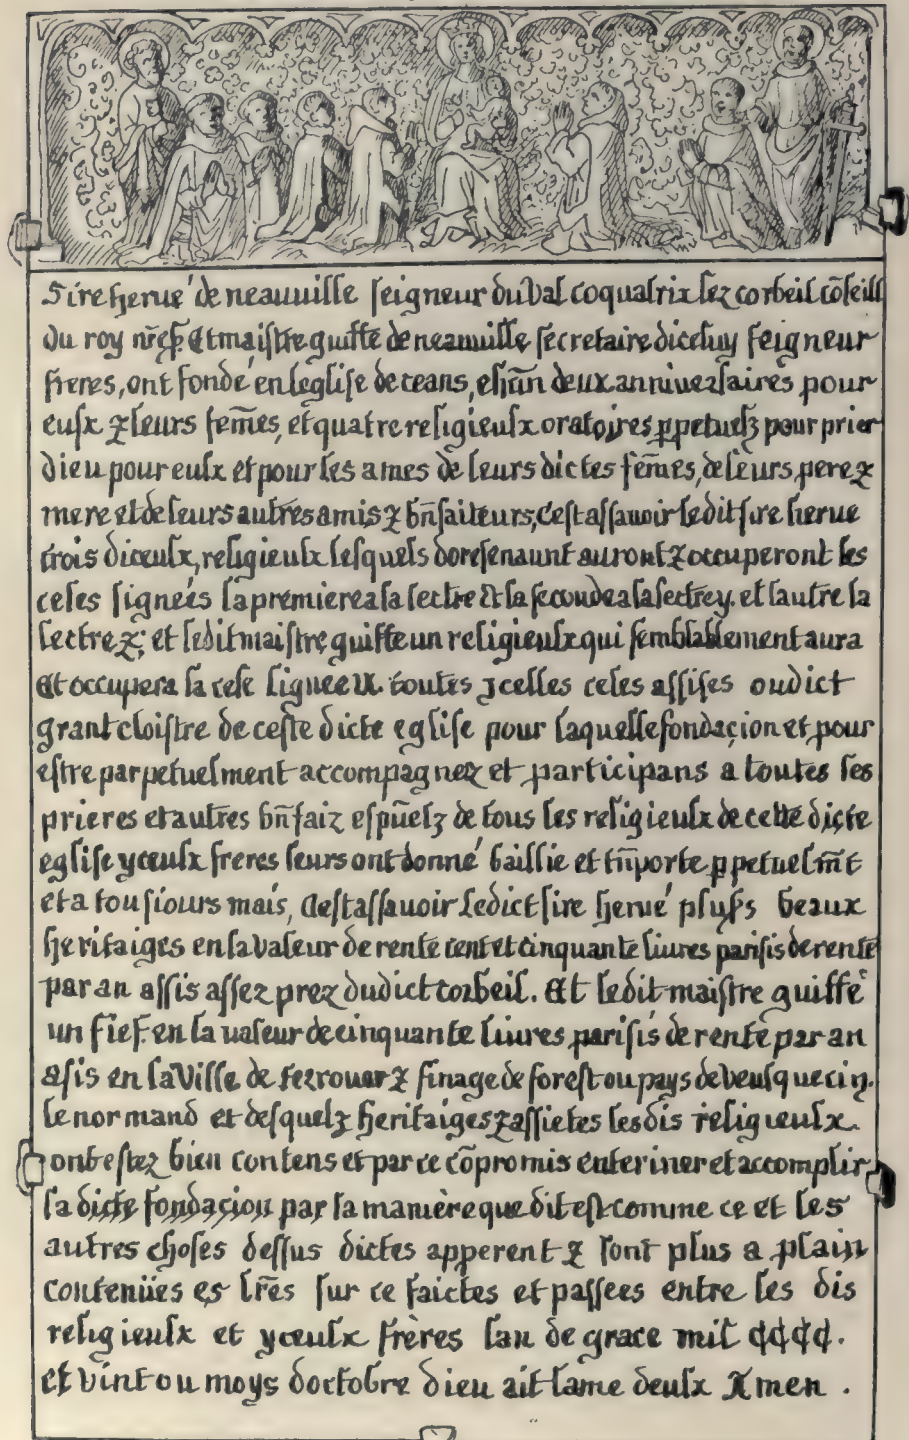 Sire herué de neauuille seigneur du Val coquatrix lez corbeil cōseill
du roy nr̄e sʳ Et maistre guiłłe de neauuille secretaire diceluy seigneur
freres, ont fondé en leglise de ceans, deux anniuersaires pour
eulx ⁊ leurs fem̄es, et quatre religieulx oratoires ꝑpetuelz pour prier
dieu pour eulx et pour les ames de leurs dictes fem̄es, de leurs pere ⁊
mere et de leurs autres amis ⁊ bn̄faiteurs, Cest assauoir ledit sire herue
trois diceulx, religieulx lesquels doresenaunt auront ⁊ occuperont les
celes signées la premiere a la lectre & la seconde a la lectre y. et lautre la
lectre ⁊; et ledit maistre guiłłe un religieulx qui semblablement aura
Et occupera la cele signee U. toutes jcelles celes assises oudict
grant cloistre de ceste dicte eglise pour laquelle fondaçion et pour
estre parpetuelment accompagnez et participans a toutes les
prieres et autres bn̄faiz espūelz de tous les religieulx de cette dicte
eglise yceulx freres leurs ont donné baillie et ꝑpetuelm̄t
et a tousiours mais, Cest assauoir Ledict sire herué beaux
heritaiges en la valeur de rente cent et cinquante liures parisis de rente
par an assis assez prez dudict corbeil. Et ledit maistre guiłłe
un fief en la ualeur de cinquante liures parisis de rente par an
asis en la Ville de ferrouer ⁊ finage de forest ou pays de veulquecin
le normand et desquelz heritaiges ⁊ assietes lesdis religieulx
ont estez bien contens et par ce cōpromis enteriner et accomplir
la dicte fondaçion par la manière que dit est comme ce et les
autres choses dessus dictes apperent ⁊ sont plus a plain
contenües es lr̄es sur ce faictes et passees entre les dis
religieulx et yceulx frères lan de grace mil CCCC.
et vint ou moys doctobre dieu ait lame deulx Amen .